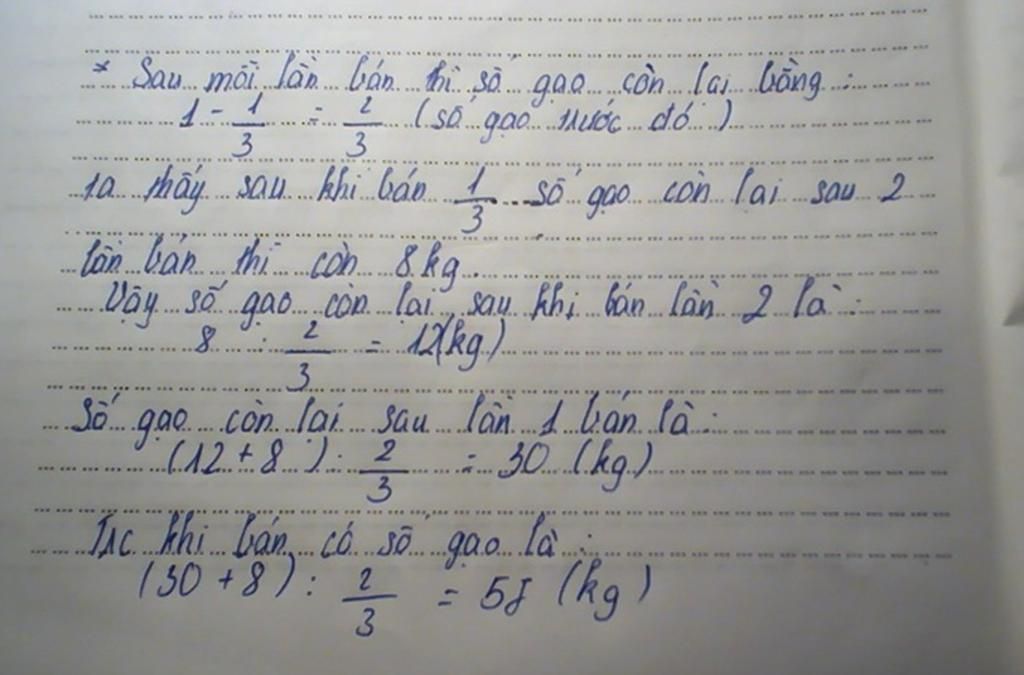 * Sau mỗi lần bán thì số gạo còn lại bằng :
1 - 1/3 = 2/3 (số gạo trước đó )
Ta thấy sau khi bán 1/3 số gạo còn lại sau 2
lần bán thì còn 8 kg.
Vậy số gạo còn lại sau khi bán lần 2 là :
8 : 2/3 = 12(kg)
Số gạo còn lại sau lần 1 bán là :
(12 + 8 ) : 2/3 = 30 (kg)
Trc khi bán có số gạo là :
(30 + 8) : 2/3 = 57 (kg)